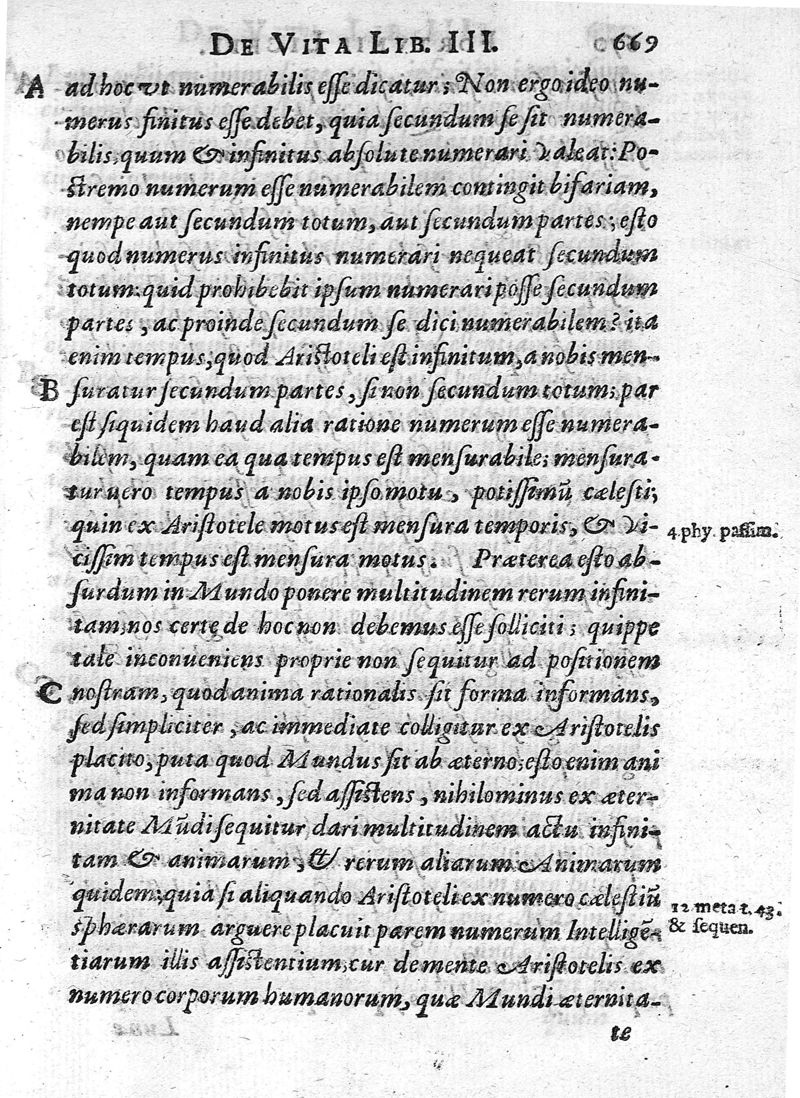 DE VITA LIB. III. 669
A ad hoc vt numerabilis esse dicatur; Non ergo ideo nu-
merus finitus esse debet, quia secundum se sit numera-
bilis, quum & infinitus absolute numerari valeat: Po-
stremo numerum esse numerabilem contingit bifariam,
nempe aut secundum totum, aut secundum partes; esto
quod numerus infinitus numerari nequeat secundum
totum: quid prohibebit ipsum numerari posse secundum
partes, ac proinde secundum se dici numerabilem? ita
enim tempus, quod Aristoteli est infinitum, a nobis men-
B suratur secundum partes, si non secundum totum; par
est siquidem haud alia ratione numerum esse numera-
bilem, quam ea qua tempus est mensurabile; mensura-
tur uero tempus a nobis ipso motu, potissimū cælesti;
quin ex Aristotele motus est mensura temporis, & vi-
4. phy. passim.
cissim tempus est mensura motus. Præterea esto ab-
surdum in Mundo ponere multitudinem rerum infini-
tam, nos certę de hoc non debemus esse solliciti; quippe
tale inconueniens proprie non sequitur ad positionem
C nostram, quod anima rationalis sit forma informans,
sed simpliciter, ac immediate colligitur ex Aristotelis
placito, puta quod Mundus sit ab æterno; esto enim ani
ma non informans, sed assistens, nihilominus ex æter-
nitate Mūdi sequitur dari multitudinem actu infini-
tam & animarum, & rerum aliarum Animarum
quidem; quia si aliquando Aristoteli ex numero cælestiū
12 meta t. 43.
sphærarum arguere placuit parem numerum Intelligē-
& sequen.
tiarum illis assistentium, cur de mente Aristotelis ex
numero corporum humanorum, quæ Mundi æternita-
te